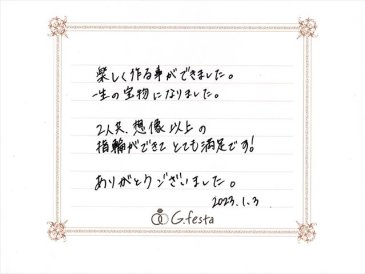 楽しく作る事ができました。
一生の宝物になりました。
2人共、想像以上の
指輪ができて とても満足です!
ありがとうございました。
2023.1.3
G.festa